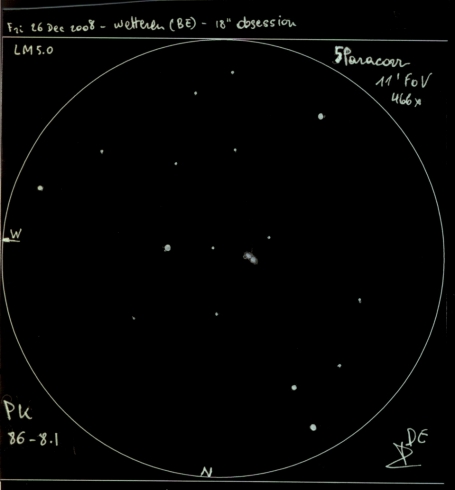 Fri 26 Dec 2008 - Wetteren (BE) - 18" obsession
LM 5.0
Paracorr
11' FoV
466x
W
PK
86-8.1
N
DE